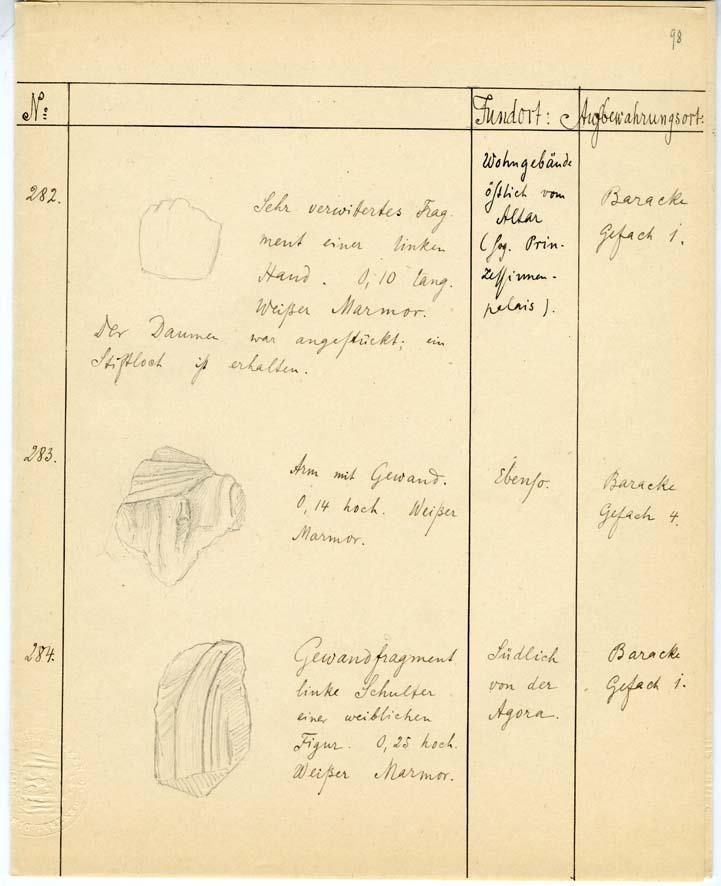 98
No:
Fundort:
Aufbewahrungsort:
282.
Sehr verwitertes Frag-
ment einer linken
Hand. 0,10 lang.
Weißer Marmor.
Der Daumen war angestückt; ein
Stiftloch ist erhalten.
Wohngebände
östlich vom
Altar
(sog. Prin-
zessinnen-
palais).
Baracke
Gefach 1.
283.
Arm mit Gewand.
0,14 hoch. Weißer
Marmor.
Ebenso.
Baracke
Gefach 4.
284.
Gewandfragment,
linke Schulter
einer weiblichen
Figur. 0,25 hoch.
Weißer Marmor.
Südlich
von der
Agora.
Baracke
Gefach 1.